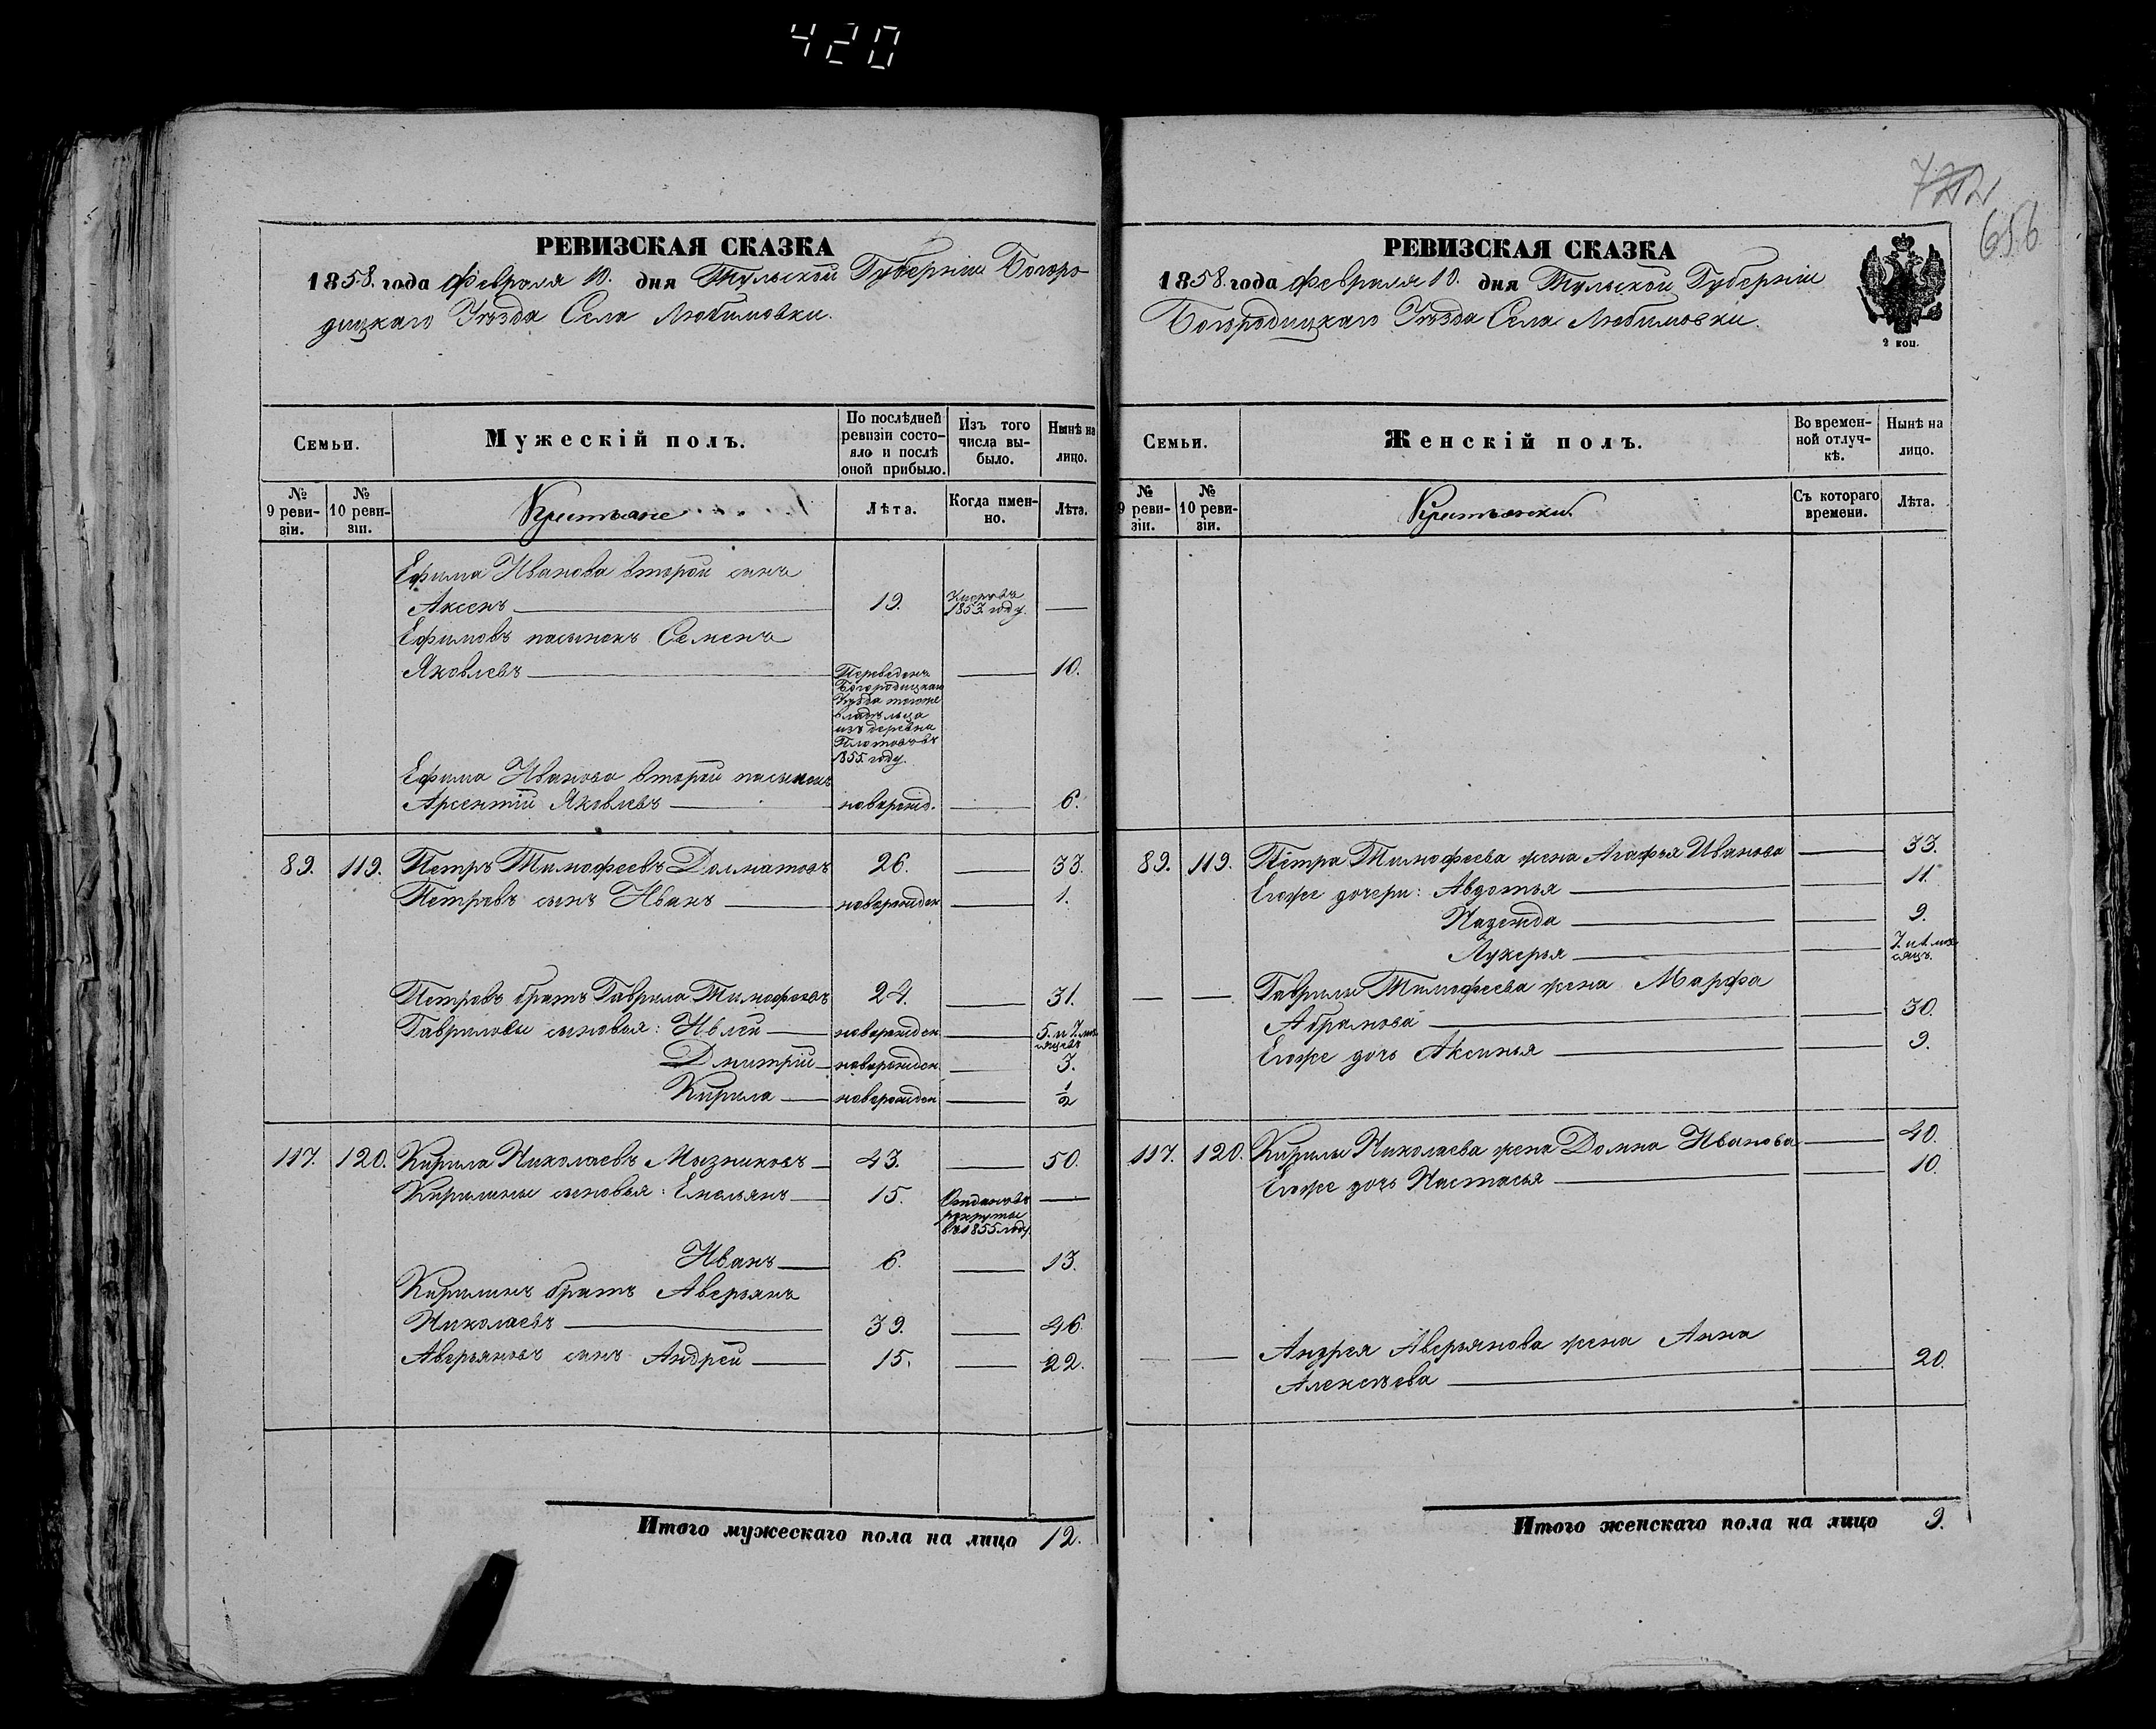 420
722
656
РЕВИЗСКАЯ СКАЗКА
1858. года Февраля 10. дня Тульской Губерніи Богоро-
дицкаго Уѣзда Села Любимовки.
Семьи.
Мужескій полъ.
По послѣдней ревизіи состо-
яло и послѣ оной прибыло.
Изъ того числа вы-
было.
Нынѣ на лицо.
№ 9 реви-
зіи.
№ 10 реви-
зіи.
Крестьяне
Лѣта.
Когда имен-
но.
Лѣта.
Ефима Иванова второй сынъ
Аксенъ 19. 1857. году.
Ефимовъ пасынокъ Семенъ
Яковлевъ 10.
Переведенъ
Богородицкаго
Уѣзда тогоже
владѣльца
изъ деревни
1855. году.
Ефима Иванова второй пасынокъ
Арсентій Яковлевъ новорожд. 6.
89. 119. Петръ Тимофеевъ Долматовъ 26. 33.
Петровъ сынъ Иванъ новорожден 1.
Петровъ братъ Гаврила Тимофеевъ 24. 31.
Гавриловы сыновья: Ивлей новорожден 5. и 7. мѣ-
сяцевъ
Дмитрій новорожден 3.
Кирила новорожден ½
117. 120. Кирила Николаевъ Мызниковъ 43. 50.
Кирилины сыновья: Емельянъ 15. Отданъ въ
рекруты
въ 1855 году.
Иванъ 6. 13.
Кирилинъ братъ Аверьянъ
Николаевъ 39. 46.
Аверьяновъ сынъ Андрей 15. 22.
Итого мужескаго пола на лицо 12.
РЕВИЗСКАЯ СКАЗКА
1858. года Февраля 10. дня Тульской Губерніи
Богородицкаго Уѣзда Села Любимовки.
2 коп.
Семьи.
Женскій полъ.
Во времен-
ной отлуч-
кѣ.
Нынѣ на лицо.
№ 9 реви-
зіи.
№ 10 реви-
зіи.
Крестьянки.
Съ котораго времени.
Лѣта.
89. 119. Петра Тимофеева жена Агафья Иванова 33.
Егоже дочери: Авдотья 11.
Надежда 9.
Лукерья 7. и 1. мѣ-
сяцъ.
Гаврилы Тимофеева жена Марфа
Абрамова 30.
Егоже дочь Аксинья 9.
117. 120. Кирилы Николаева жена Домна Иванова 40.
Егоже дочь Настасья 10.
Андрея Аверьянова жена Анна
Алексѣева 20.
Итого женскаго пола на лицо 9.